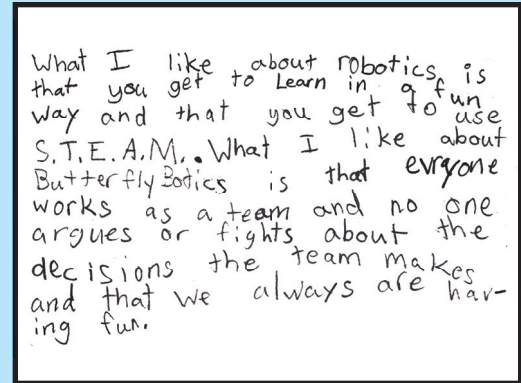 What I like about robotics is
that you get to Learn in a fun
way and that you get to use
S.T.E.A.M.. What I like about
Butterfly Botics is that evryone
works as a team and no one
argues or fights about the
decisions the team makes
and that we always are hav-
ing fun.